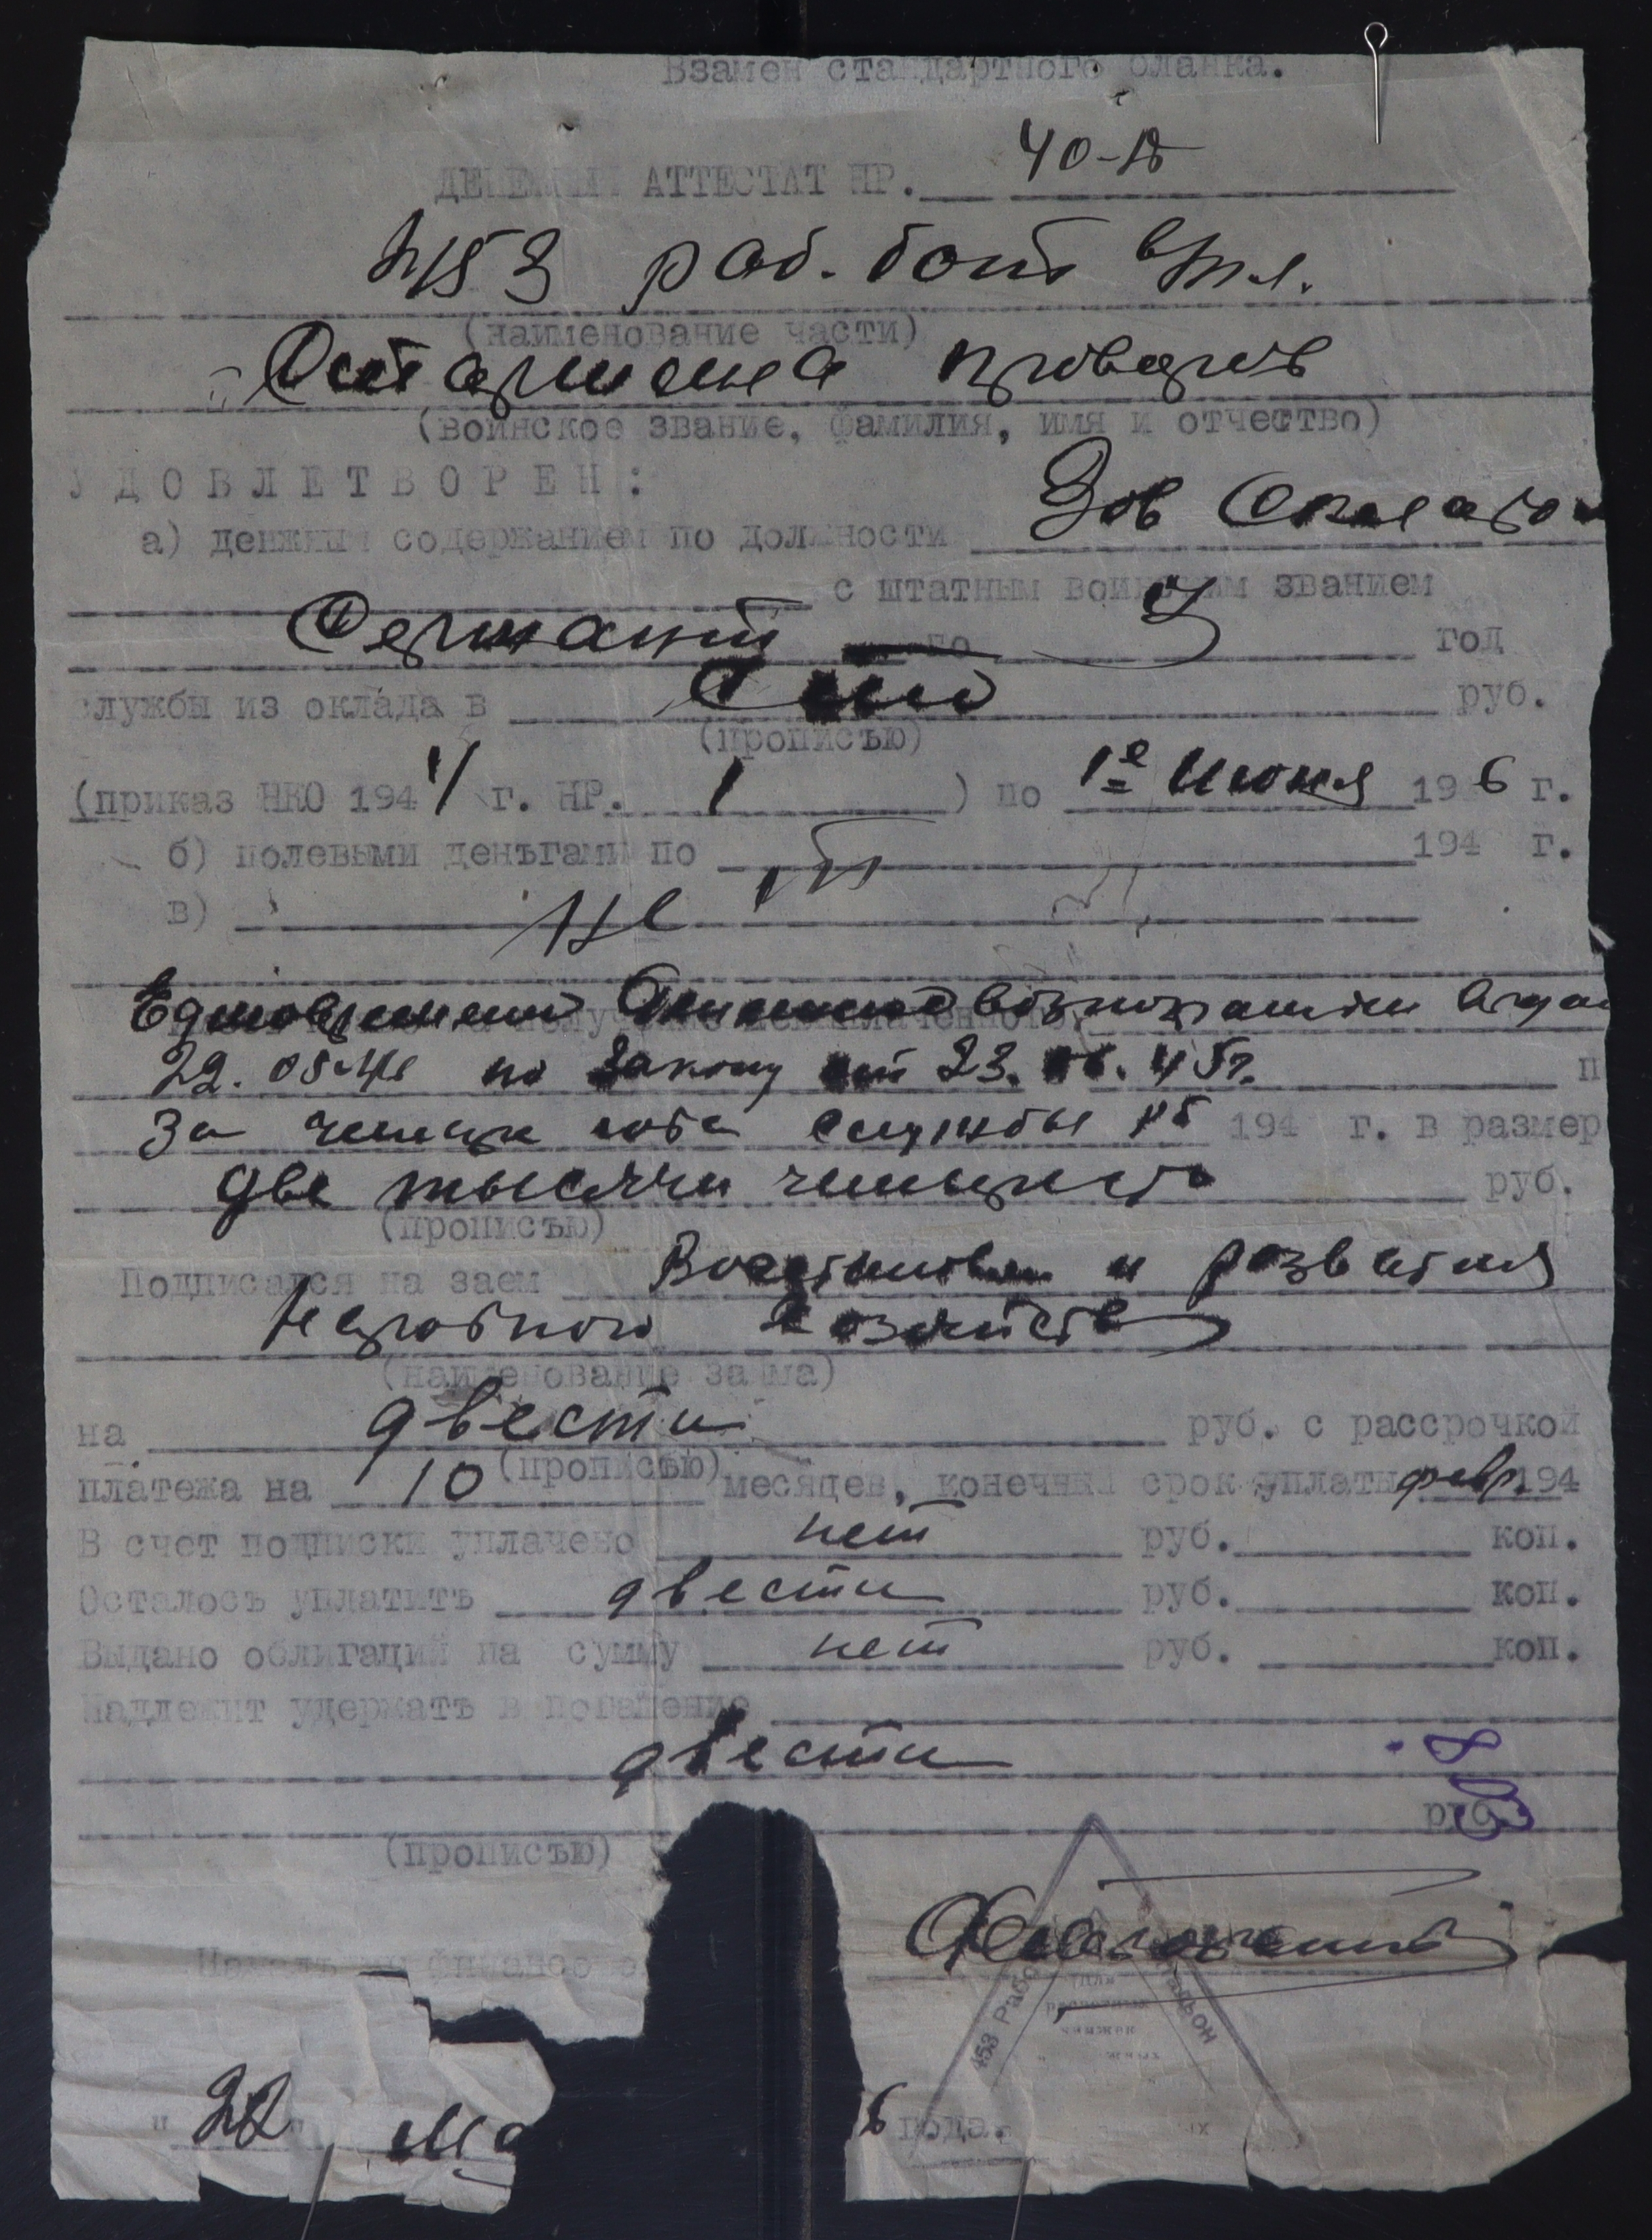 Взамен стандартного бланка.
ДЕНЕЖНЫЙ АТТЕСТАТ НР. 40-
453 раб. бат
(наименование части)
Старшина
(воинское звание, фамилия, имя и отчество)
УДОВЛЕТВОРЕН:
а) денжным содержанием по должности Зав Складом
с штатным воинским званием
Сержант по год
службы из оклада в Сто руб.
(прописью)
(приказ НКО 194 г. НР. 1 ) по 1е Июня 19 6 г.
б) полевыми деньгами по 194 г.
в) Нет
Единовременно вознаграждение выдано
22.05.46 по Закону от 23.06.45г. п
За четыре года службы 194 г. в размер
две тысячи четыреста руб.
(прописью)
Подписался на заем Восстановлен и развития
Народного Хозяйства
(наименование займа)
на двести руб. с рассрочкой
(прописью)
платежа на 10 месяцев, конечный срок уплаты февр 194
В счет подписки уплачено нет руб. коп.
Осталось уплатить двести руб. коп.
Выдано облигаций на сумму нет руб. коп.
Надлежит удержать в погашение
двести
руб.
(прописью)
Начальник финансо
453 Рабо
тальон
Для
расчетных
книжек
"22" Ма 6 года.